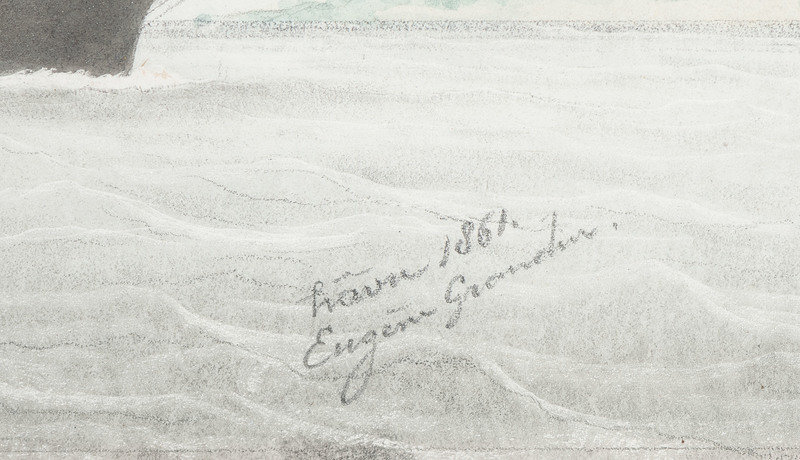 hâvre 1861.
Eugène Grandin.